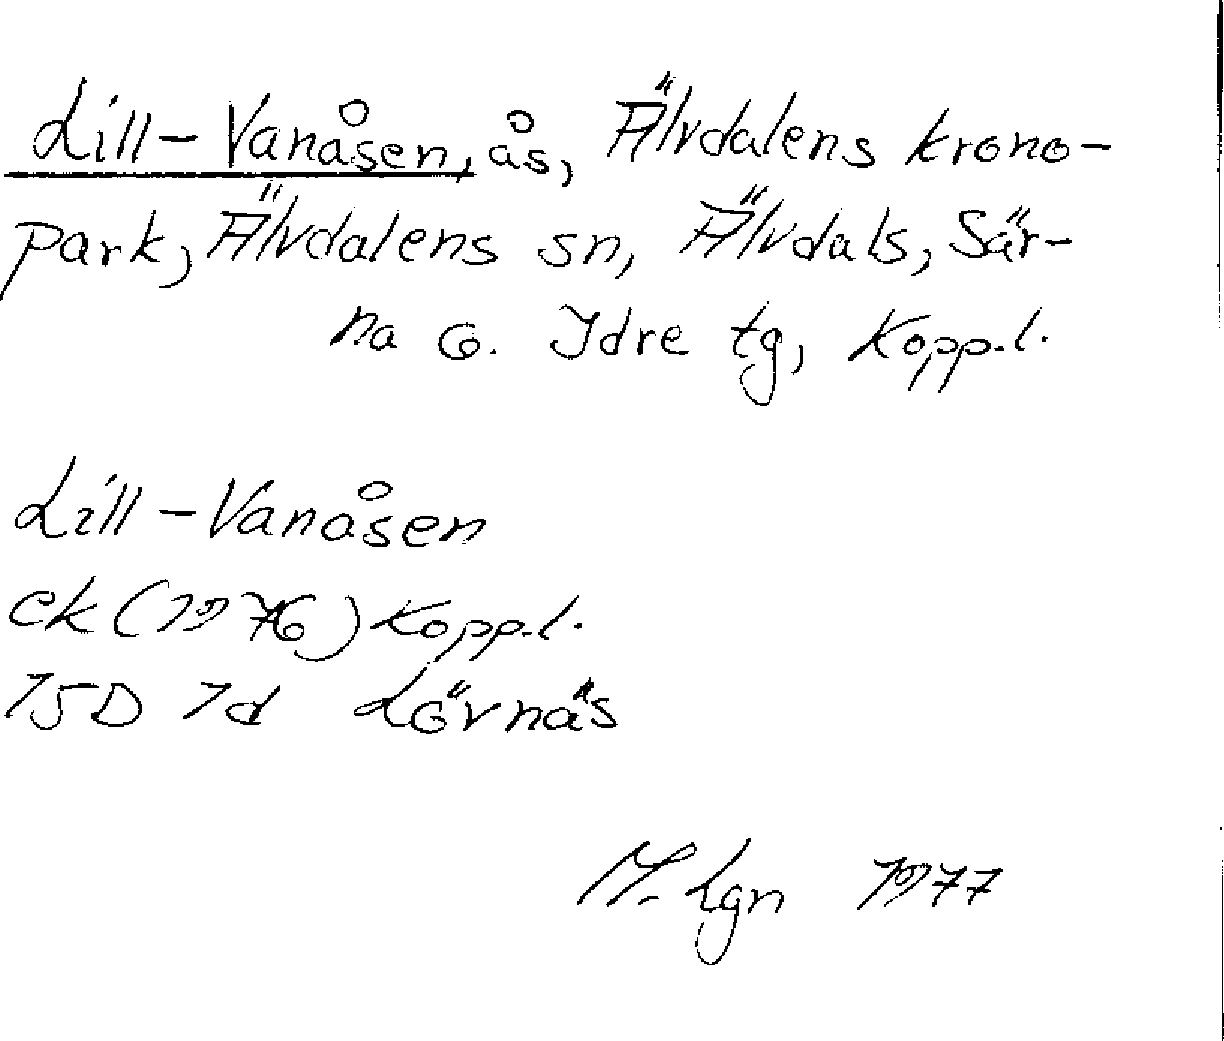 Lill-Vanåsen, ås, Älvdalens krono-
park, Älvdalens sn, Älvdals, Sär-
na o. Idre tg, Kopp.l.
Lill-Vanåsen
ek (1976) Kopp.l.
15D 1d Lövnäs
M. Lgn 1977